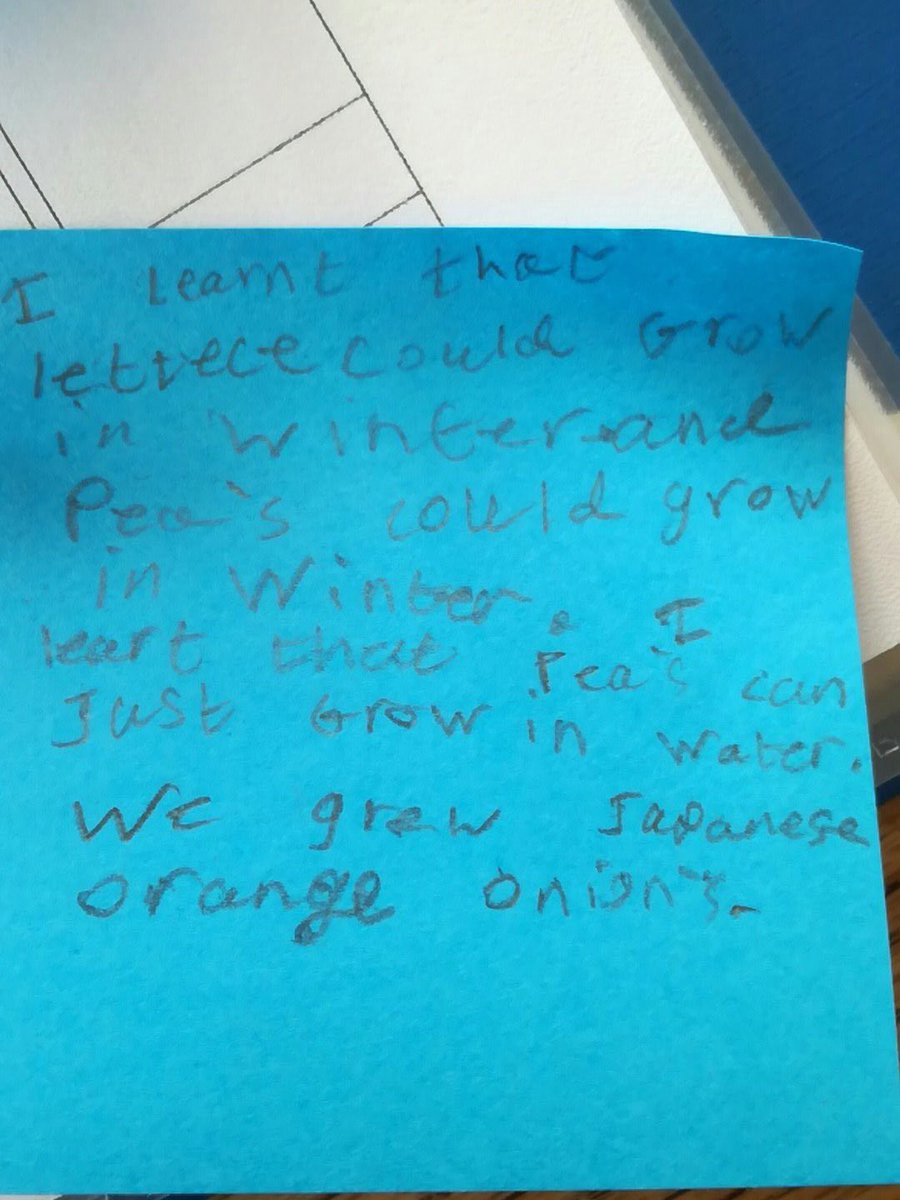 I learnt that
lettece could Grow
in Winter and
Pea's could grow
in Winter. I
leart that Pea's can
Just Grow in water.
We grew Japanese
orange onion's.